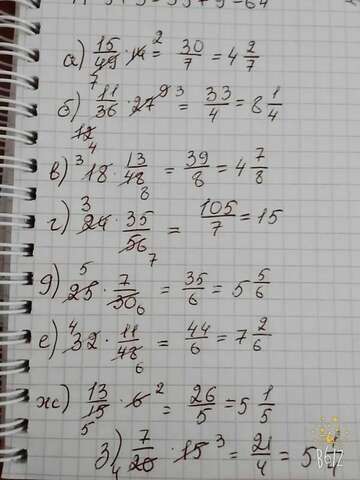 а) 15/49 · 14 ² = 30/7 = 4 2/7
7
б) 11/36 · 27 9 3 = 33/4 = 8 1/4
12 4
в) 3 18 · 13/48 = 39/8 = 4 7/8
8
г) 3 24 · 35/56 = 105/7 = 15
7
д) 5 25 · 7/30 = 35/6 = 5 5/6
6
е) 4 32 · 11/48 = 44/6 = 7 2/6
6
ж) 13/15 · 6 2 = 26/5 = 5 1/5
5
з) 7/20 · 15 3 = 21/4 = 5
4